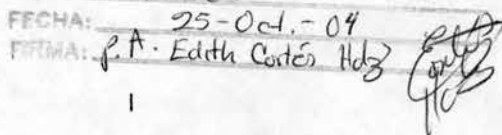 FECHA: 25-Oct.-04
FIRMA: P.A. Edith Cortés Hdz